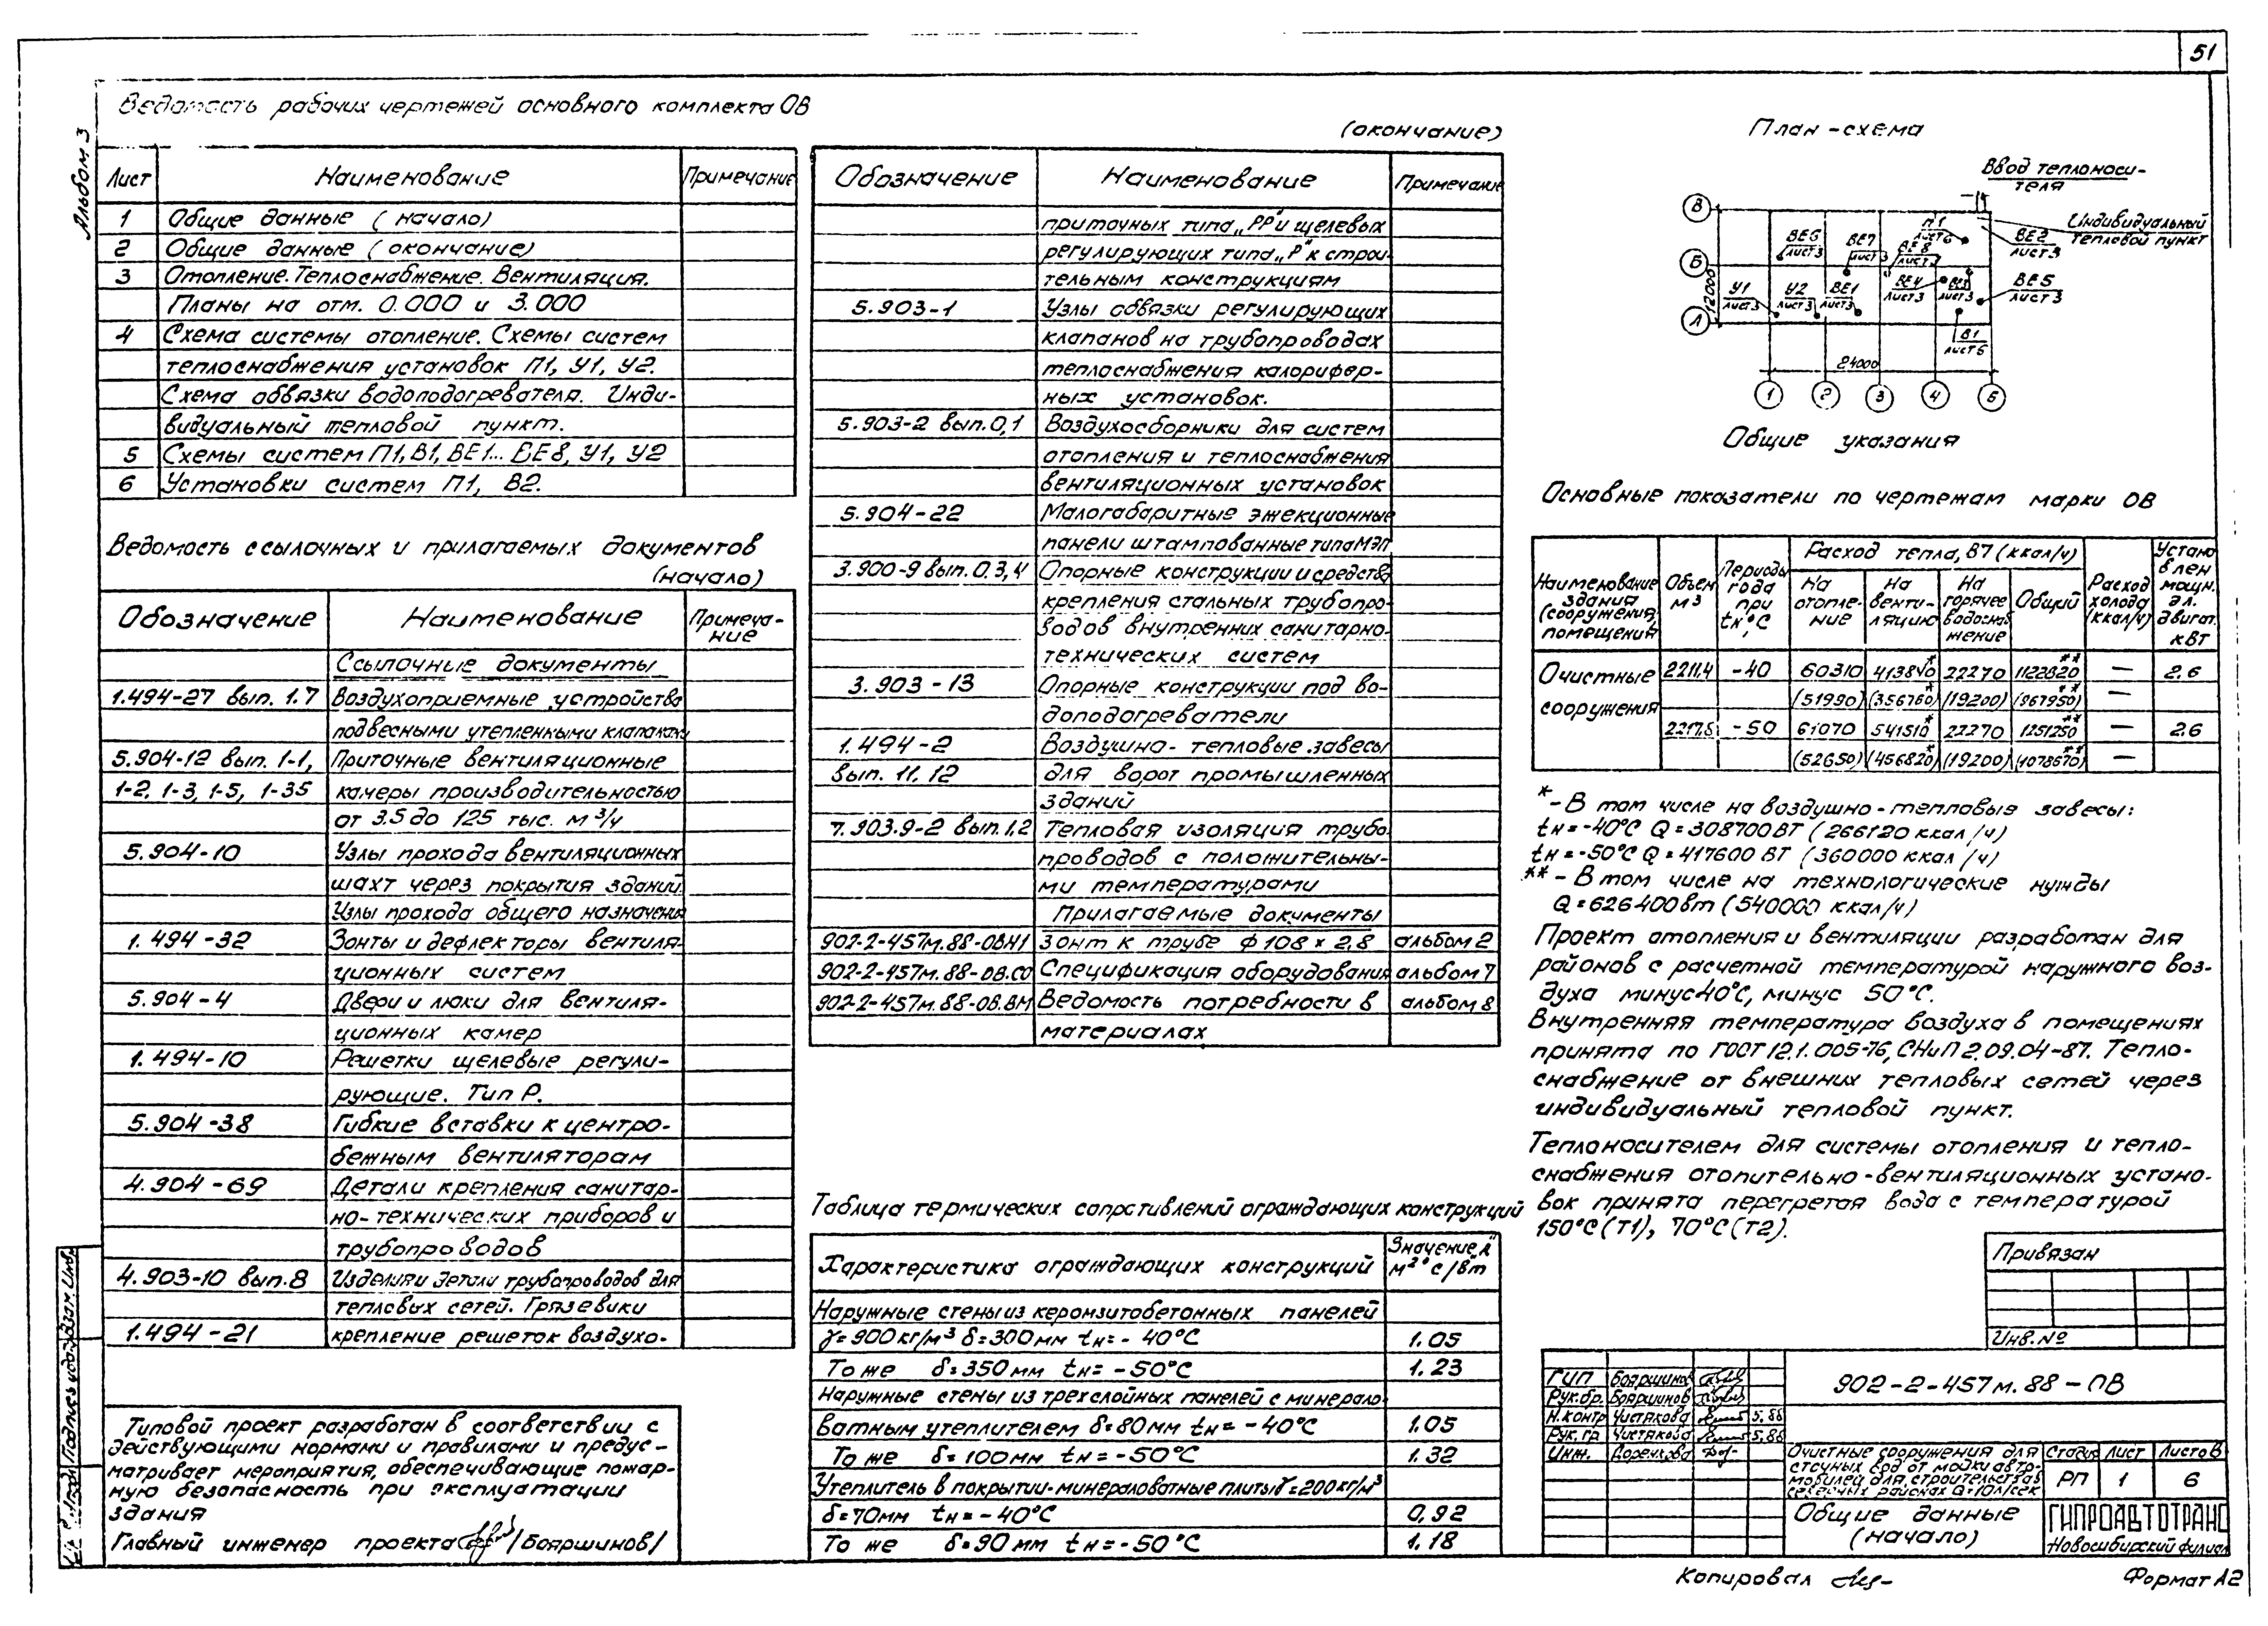 51
Альбом 3
Ведомость рабочих чертежей основного комплекта ОВ
Лист Наименование Примечание
1 Общие данные (начало)
2 Общие данные (окончание)
3 Отопление. Теплоснабжение. Вентиляция.
Планы на отм. 0.000 и 3.000
4 Схема системы отопление. Схемы систем
теплоснабжения установок П1, У1, У2.
Схема обвязки водоподогревателя. Инди-
видуальный тепловой пункт.
5 Схемы систем П1, В1, ВЕ1... ВЕ8, У1, У2
6 Установки систем П1, В2.
Ведомость ссылочных и прилагаемых документов
(начало)
Обозначение Наименование Примеча-
ние
Ссылочные документы
1.494-27 вып. 1.7 Воздухоприемные устройства
подвесными утепленными клапанами
5.904-12 вып. 1-1, Приточные вентиляционные
1-2, 1-3, 1-5, 1-35 камеры производительностью
от 3.5 до 125 тыс. м³/ч
5.904-10 Узлы прохода вентиляционных
шахт через покрытия зданий.
Узлы прохода общего назначения
1.494-32 Зонты и дефлекторы вентиля-
ционных систем
5.904-4 Двери и люки для вентиля-
ционных камер
1.494-10 Решетки щелевые регули-
рующие. Тип Р.
5.904-38 Гибкие вставки к центро-
бежным вентиляторам
4.904-69 Детали крепления санитар-
но-технических приборов и
трубопроводов
4.903-10 вып.8 Изделия и детали трубопроводов для
тепловых сетей. Грязевики
1.494-21 крепление решеток воздухо-
Типовой проект разработан в соответствии с
действующими нормами и правилами и предус-
матривает мероприятия, обеспечивающие пожар-
ную безопасность при эксплуатации
здания
Главный инженер проекта /Бояршинов/
(окончание)
Обозначение Наименование Примечание
приточных типа „РР" и щелевых
регулирующих типа „Р" к строи-
тельным конструкциям
5.903-1 Узлы обвязки регулирующих
клапанов на трубопроводах
теплоснабжения калорифер-
ных установок.
5.903-2 вып.0,1 Воздухосборники для систем
отопления и теплоснабжения
вентиляционных установок
5.904-22 Малогабаритные эжекционные
панели штампованные типа МЭП
3.900-9 вып.0.3,4 Опорные конструкции и средства
крепления стальных трубопро-
водов внутренних санитарно-
технических систем
3.903-13 Опорные конструкции под во-
доподогреватели
1.494-2 Воздушно-тепловые завесы
вып. 11, 12 для ворот промышленных
зданий
7.903.9-2 вып.1,2 Тепловая изоляция трубо
проводов с положительны-
ми температурами
Прилагаемые документы
902-2-457м.88-ОВН1 Зонт к трубе ф 108 х 2,8 альбом 2
902-2-457м.88-ОВ.СО Спецификация оборудования альбом 7
902-2-457м.88-ОВ.ВМ Ведомость потребности в альбом 8
материалах
Таблица термических сопротивлений ограждающих конструкций
Характеристика ограждающих конструкций Значение „R"
м²°с/вт
Наружные стены из керомзитобетонных панелей
γ=900кг/м³ δ=300мм tн=-40°С 1.05
То же δ=350мм tн=-50°С 1.23
Наружные стены из трехслойных панелей с минерало-
ватным утеплителем δ=80мм tн=-40°С 1.05
То же δ=100мм tн=-50°С 1.32
Утеплитель в покрытии-минераловатные плиты γ=200кг/м³
δ=70мм tн=-40°С 0,92
То же δ=90мм tн=-50°С 1.18
План-схема
Ввод теплоноси-
теля
Индивидуальный
тепловой пункт
В
Б
А
12000
П1
лист 6
ВЕ2
лист 3
ВЕ6
лист 3
ВЕ7
лист 3
ВЕ8
ВЕ5
лист 3
У1
лист 3
У2
лист 3
ВЕ1
лист 3
ВЕ4
лист 3
ВЕ3
лист 3
В1
лист 5
24000
1 2 3 4 5
Общие указания
Основные показатели по чертежам марки ОВ
Наименование здания (сооружения) помещения
Объем м³
Периоды года при tн°С
Расход тепла, Вт (ккал/ч)
На отопле-ние
На венти-ляцию
На горячее водоснаб жение
Общий
Расход холода (ккал/ч)
Установлен мощн. эл. двигат. кВт
Очистные 2211,4 -40 60310 413840* 22270 1122820** — 2.6
(51990) (356760*) (19200) (967950**) —
сооружения 2217,5 -50 61070 541510* 22270 1251250** — 2.6
(52650) (456820*) (19200) (1078670**) —
*-В том числе на воздушно-тепловые завесы:
tн=-40°С Q=308700Вт (266120 ккал/ч)
tн=-50°С Q=417600 Вт (360000 ккал/ч)
**-В том числе на технологические нужды
Q=626400вт (540000 ккал/ч)
Проект отопления и вентиляции разработан для
районов с расчетной температурой наружного воз-
духа минус 40°С, минус 50°С.
Внутренняя температура воздуха в помещениях
принята по ГОСТ 12.1.005-76, СНиП 2.09.04-87. Тепло-
снабжение от внешних тепловых сетей через
индивидуальный тепловой пункт.
Теплоносителем для системы отопления и тепло-
снабжения отопительно-вентиляционных устано-
вок принята перегретая вода с температурой
150°С (Т1), 70°С (Т2).
Привязан
Инв. №
ГИП Бояршинов
Рук.бр. Бояршинов
Н.контр Чистякова 5.88
Рук. гр. Чистякова 5.88
Инж.
902-2-457м.88-ОВ
Очистные сооружения для
сточных вод от мойки авто-
мобилей для строительства в
северных районах Q=10л/сек
Стадия Лист Листов
РП 1 6
Общие данные
(начало)
ГИПРОАВТОТРАНС
Новосибирский филиал
Взам. инв.
Подпись и дата
Копировал
Формат А2